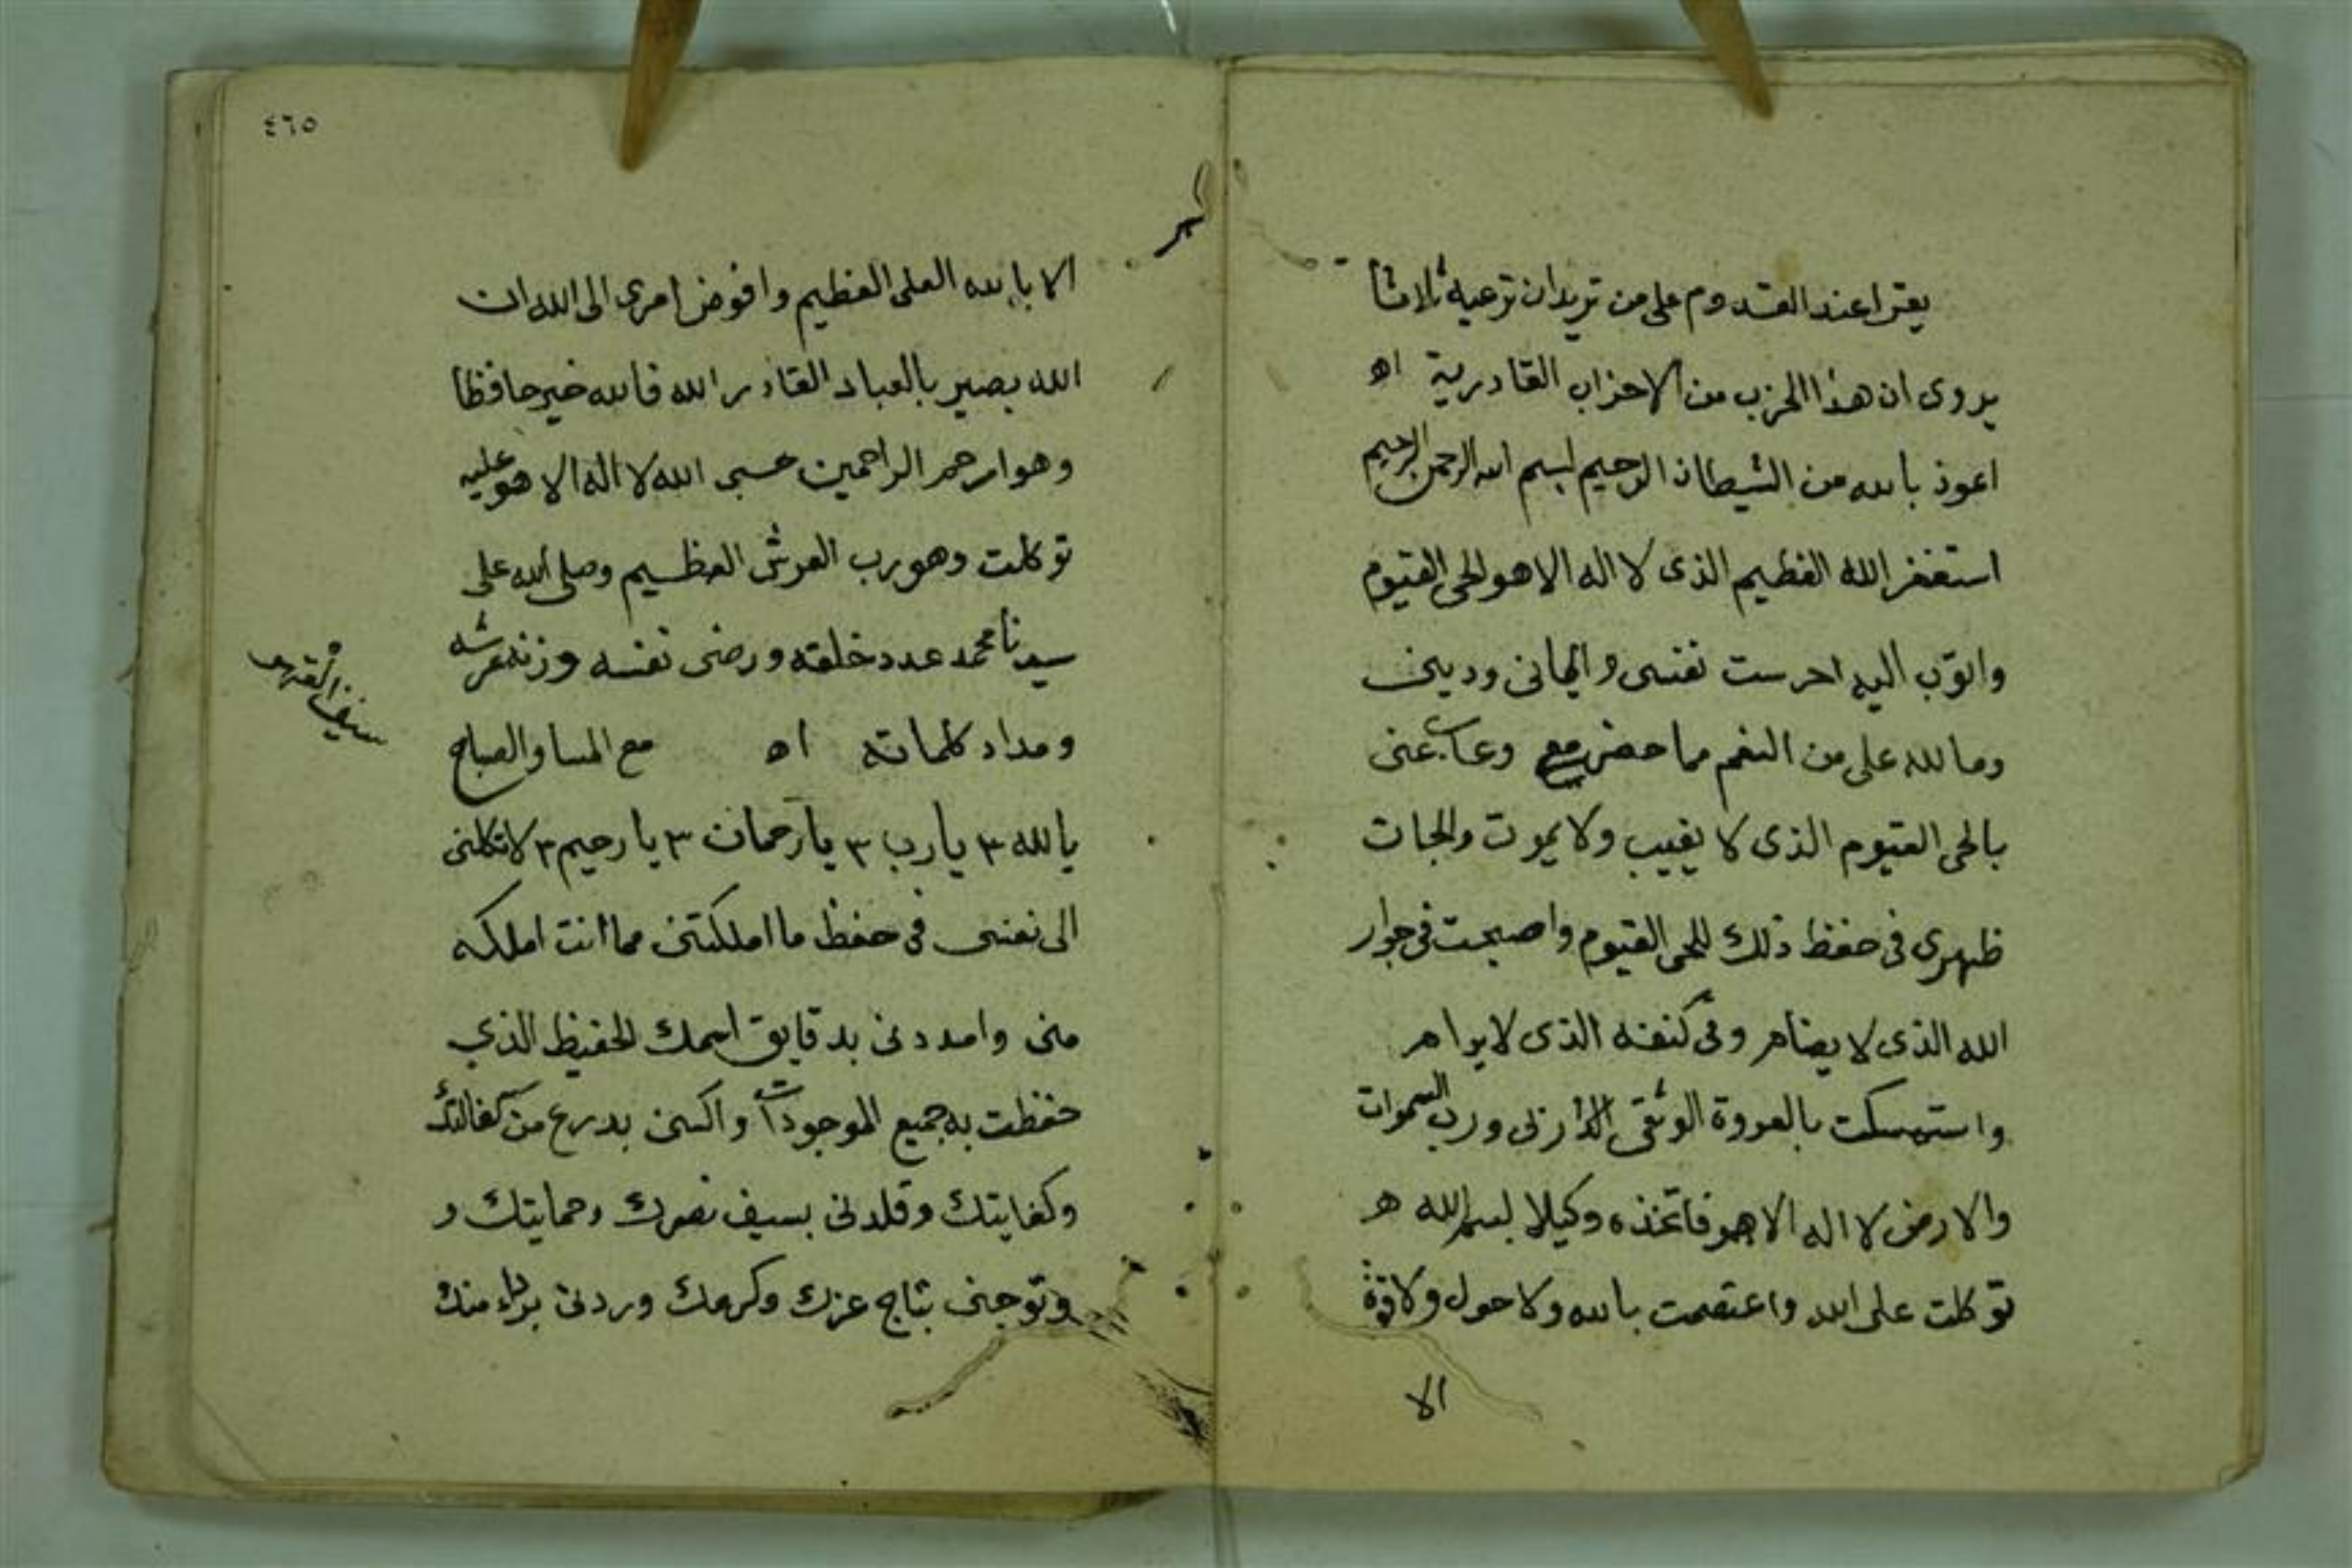 يقرا عند القدوم على من تريد ان ترعيه ثلاثا
يروى ان هذا الحزب من الاحزاب القادرية اه
اعوذ بالله من الشيطان الرجيم بسم الله الرحمن الرحيم
استغفر الله العظيم الذى لا اله الا هو الحى القيوم
واتوب اليه احرست نفسى وايمانى ودينى
وما لله على من النعم مما حضر معى وغاب عنى
بالحى القيوم الذى لا يغيب ولا يموت والجات
ظهرى فى حفظ ذلك للحى القيوم واصبحت فى جوار
الله الذى لا يضام وفى كنفه الذى لا يرام
واستمسكت بالعروة الوثقى ورب السموات
والارض لا اله الا هو فاتخذه وكيلا بسم الله ه
توكلت على الله واعتصمت بالله ولا حول ولا قوة
الا
٤٦٥
الا بالله العلى العظيم وافوض امرى الى الله ان
الله بصير بالعباد القادر الله فالله خير حافظا
وهو ارحم الراحمين حسبى الله لا اله الا هو عليه
توكلت وهو رب العرش العظيم وصلى الله على
سيدنا محمد عدد خلقه ورضى نفسه وزنة عرشه
ومداد كلماته اه مع المسا والصباح
يا الله ٣ يارب ٣ يا رحمان ٣ يا رحيم ٣ لا تكلنى
الى نفسى فى حفظ ما املكتنى مما انت املكه
منى وامددنى بدقايق اسمك الحفيظ الذي
حفظت به جميع الموجودات واكسنى بدرع من كفالتك
وكفايتك وقلدنى بسيف نصرك وحمايتك و
وتوجنى بتاج عزك وكرمك وردنى برداء منك